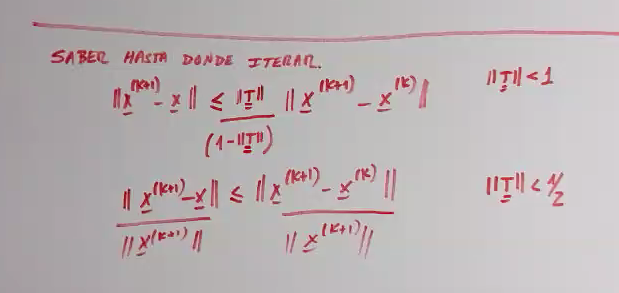 SABER HASTA DONDE ITERAR.
||x^(k+1) - x|| ≤ ||T|| / (1-||T||) ||x^(k+1) - x^(k)|| ||T|| < 1
||x^(k+1) - x|| / ||x^(k+1)|| ≤ ||x^(k+1) - x^(k)|| / ||x^(k+1)|| ||T|| < 1/2